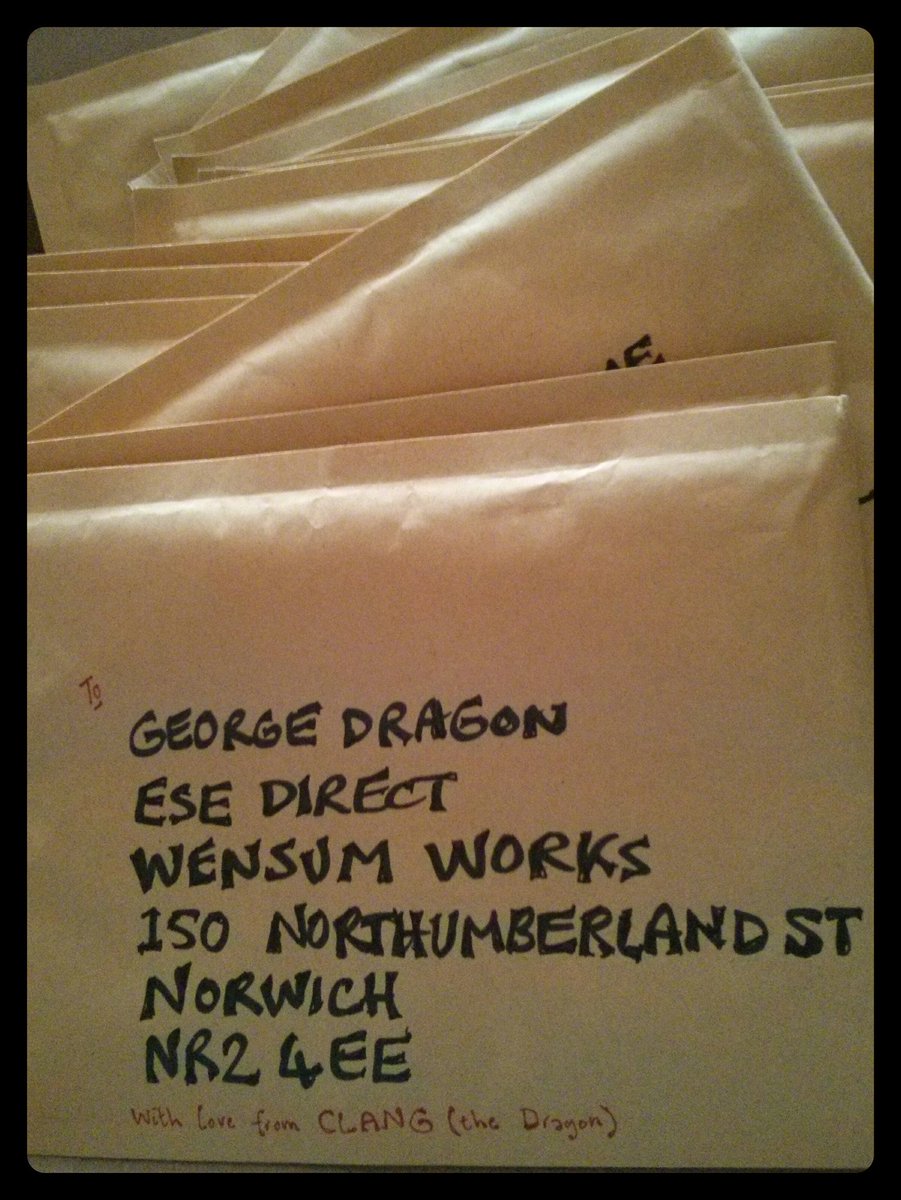 To
GEORGE DRAGON
ESE DIRECT
WENSUM WORKS
150 NORTHUMBERLAND ST
NORWICH
NR2 4EE
With love from CLANG (the Dragon)